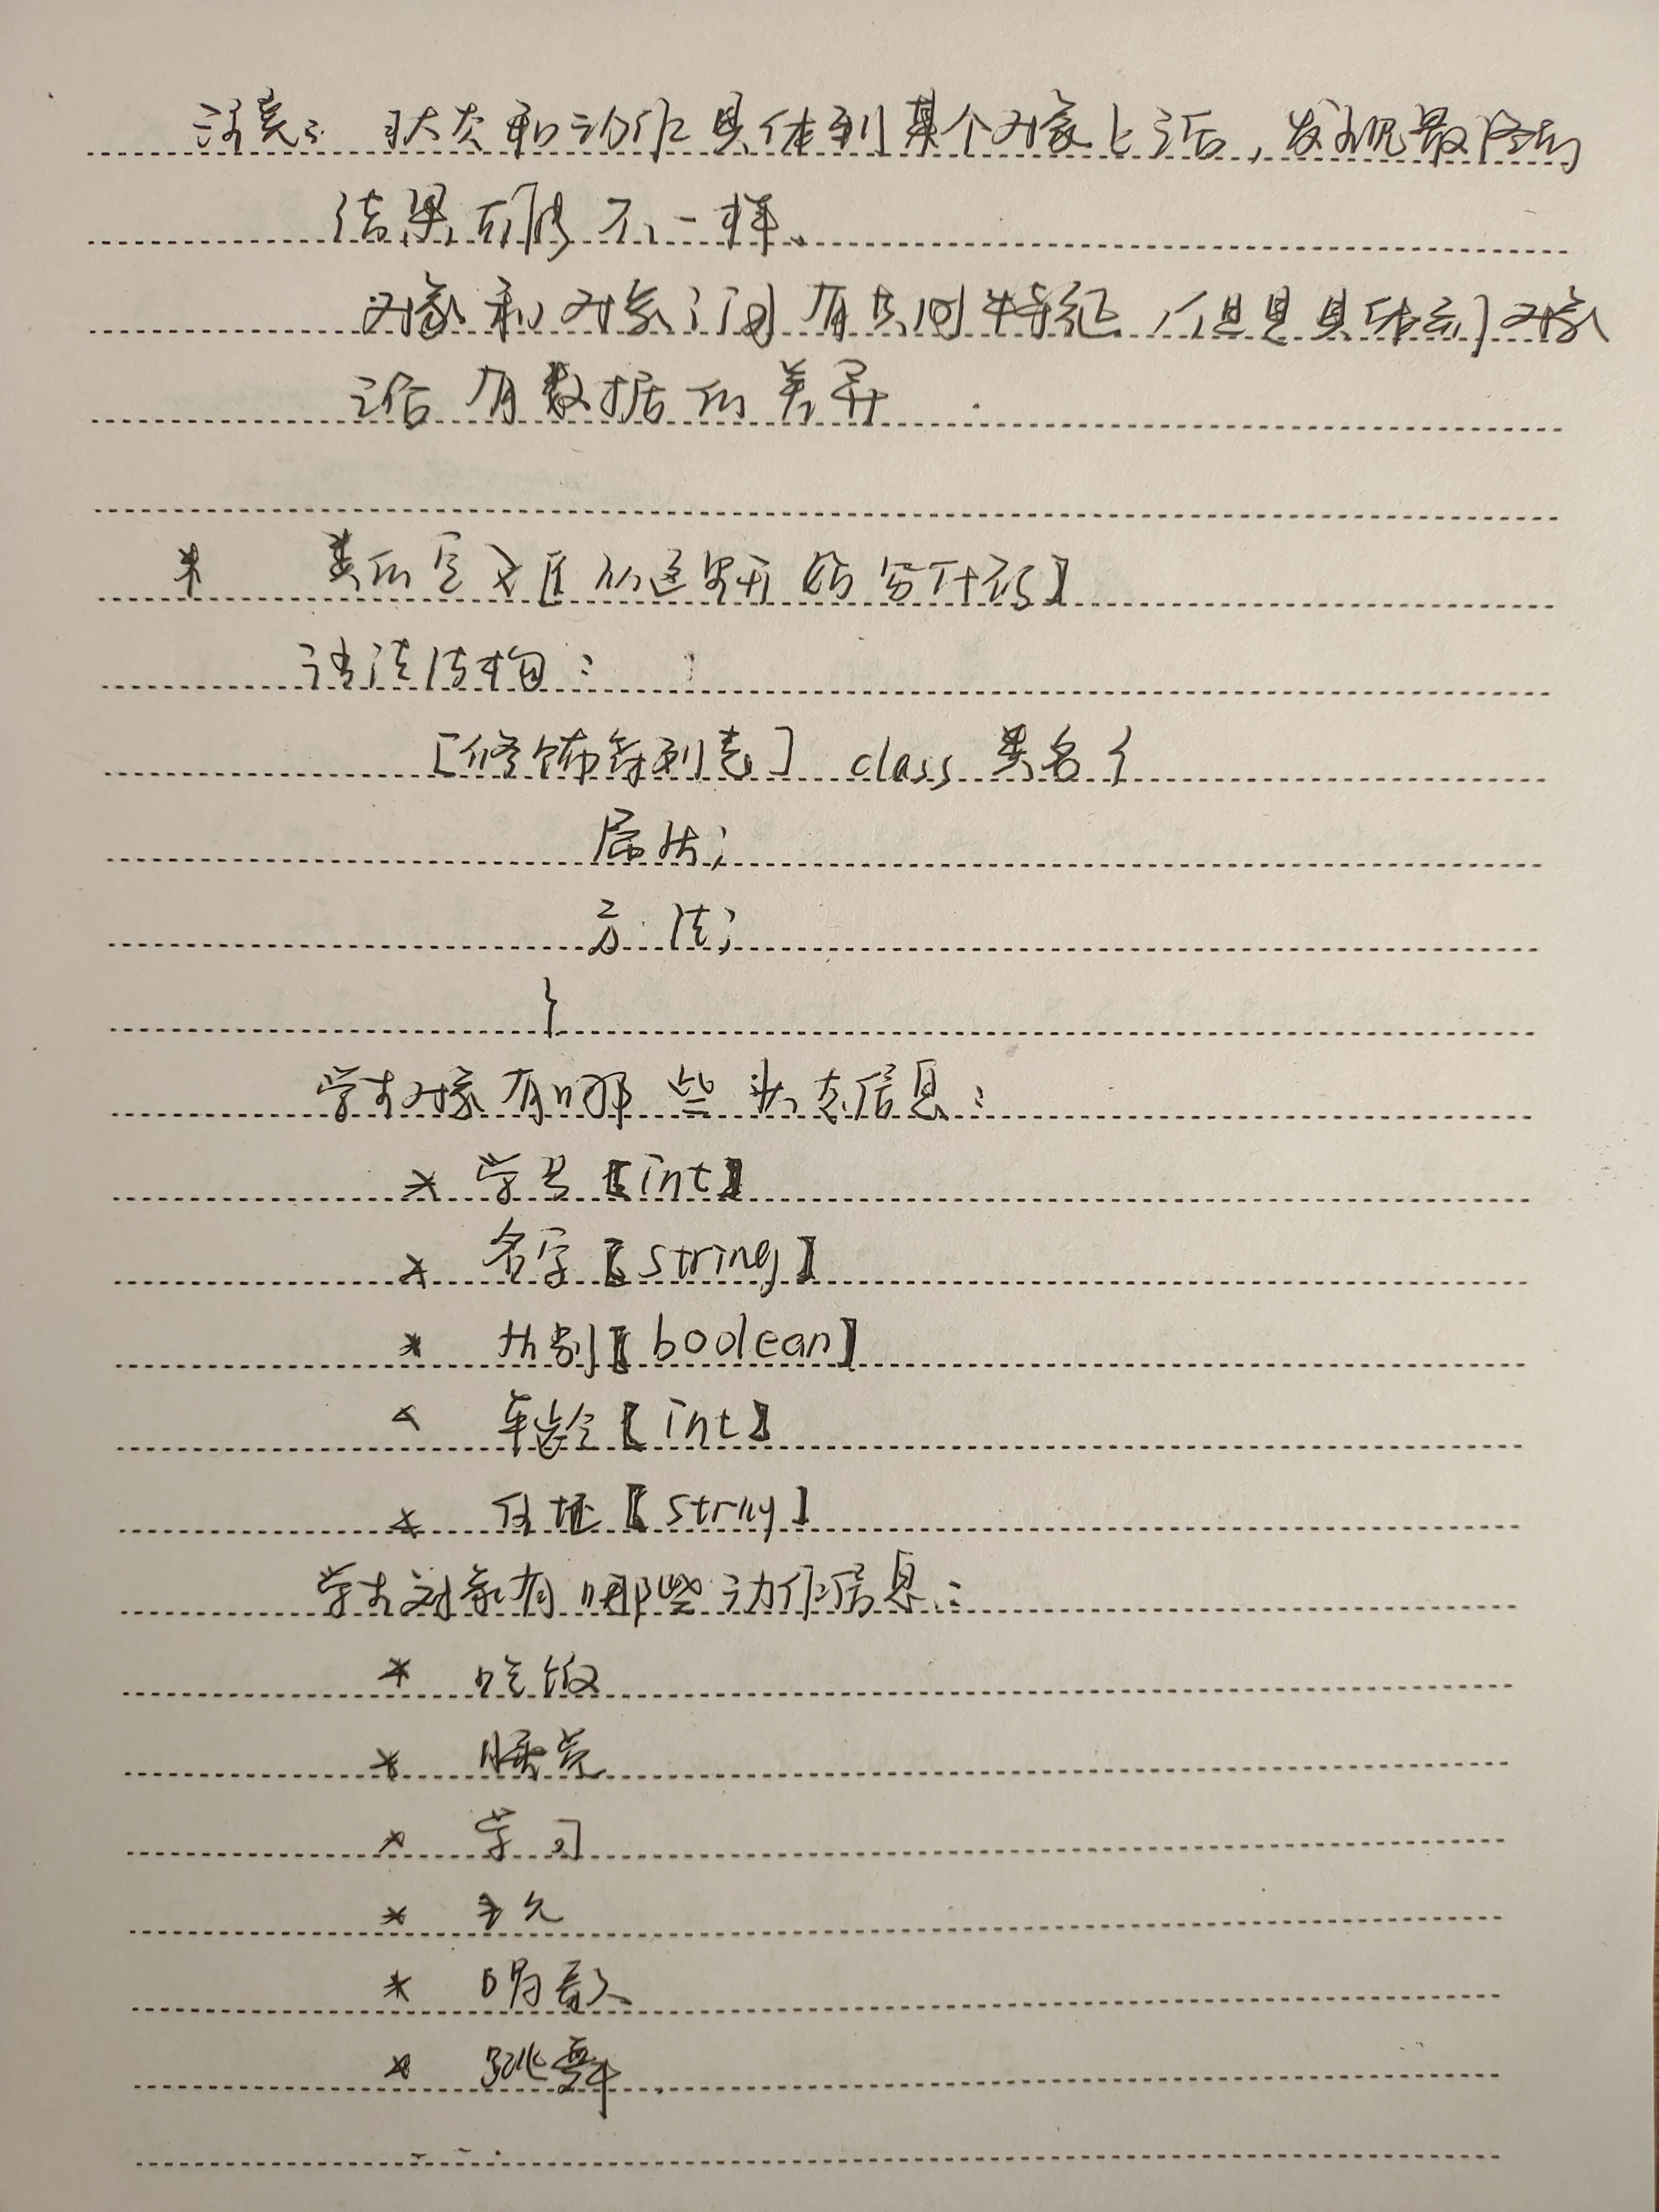 注意: 状态和动作具体到某个对象上之后,发现最终的
结果可能不一样、
对象和对象之间有共同特征,但是具体到对象
之后有数据的差异.
* 类的定义【从这里开始写代码】
语法结构:
[修饰符列表] class 类名{
属性;
方法;
}
学生对象有哪些状态信息:
* 学号【int】
* 名字【string】
* 性别【boolean】
* 年龄【int】
* 住址【string】
学生对象有哪些动作信息:
* 吃饭
* 睡觉
* 学习
* 玩
* 唱歌
* 跳舞.
...